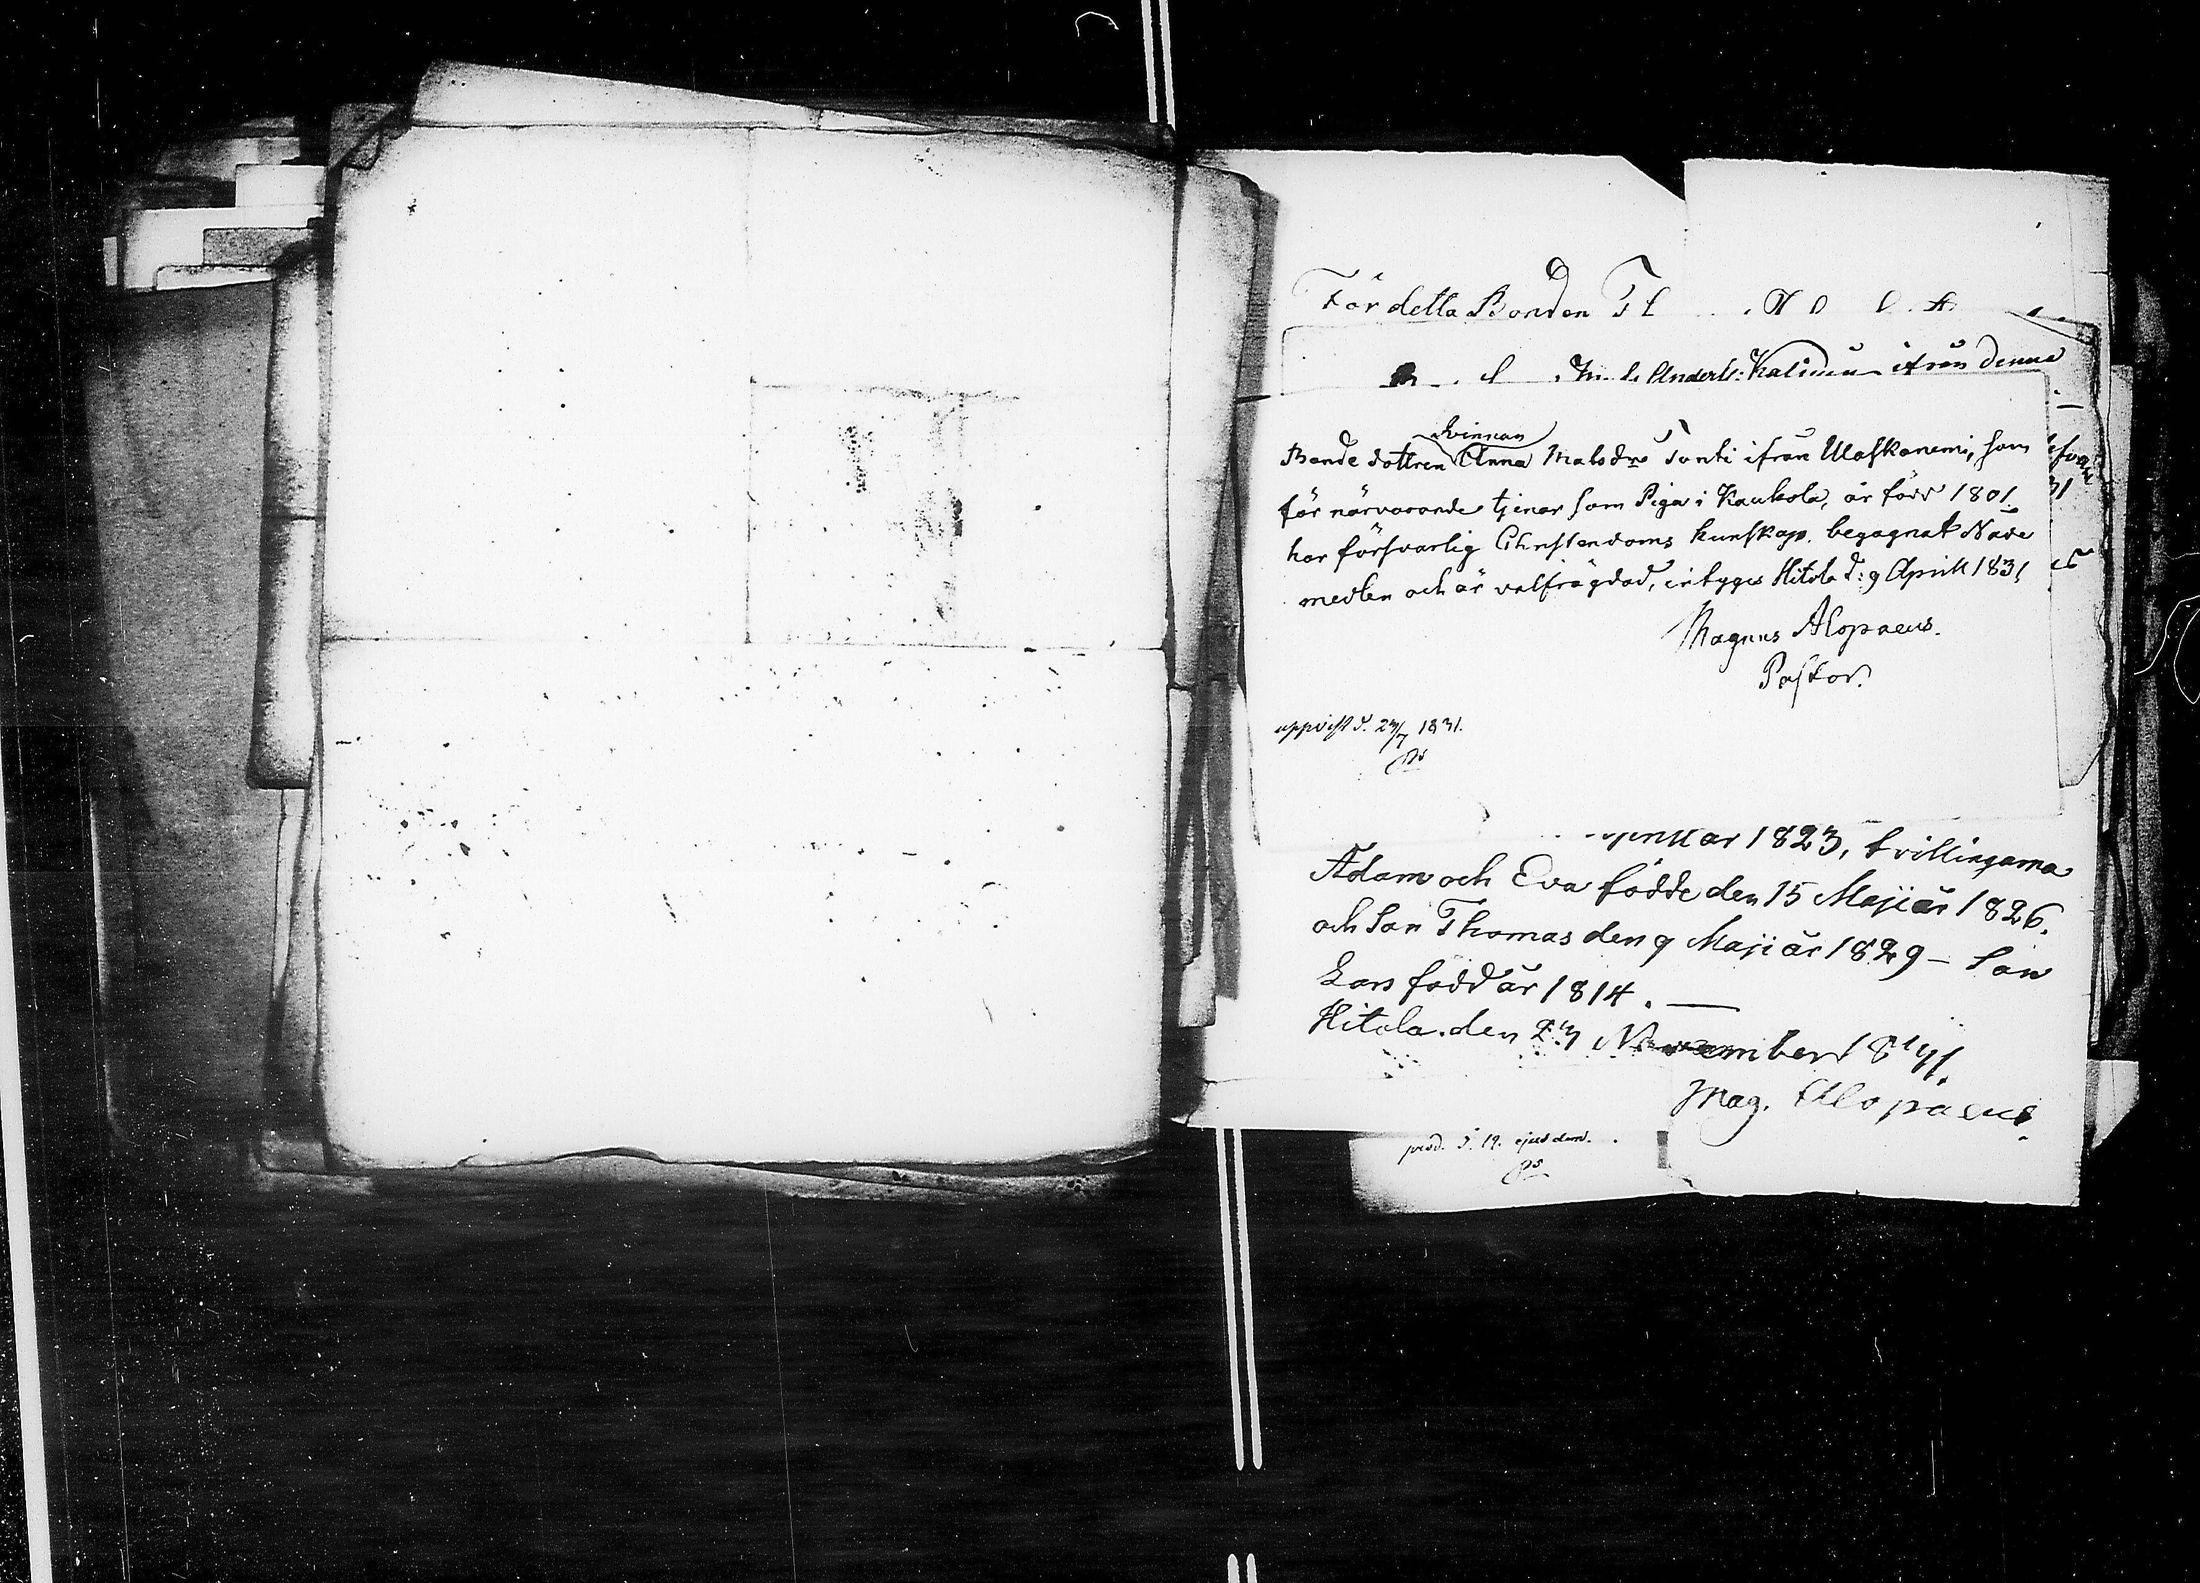 För detta Bonden
Anderss: Kalinen ifrån denna
qvinnan
Bonde dottren Anna Matsdr Tonti ifrån Ulaskanemi, som
för närvarande tjenar som Piga i Kaukola, är född 1801.
har försvarlig Christendoms kunskap. begagnat Nåde
medlen och är välfrägdad, intyges Hitola d: 9 April 1831
Magnus Alopaeus.
Pastor.
uppvist d. 23/7 1831.
1823, tvillingarna
Adam och Eva födde den 15 Maji år 1826.
och Son Thomas den 9 Maji år 1829 – Son
Lars född år 1814. —
Hitola. den 23 November 1831.
Mag. Alopaeus.
prod. d. 19. ejusdem.